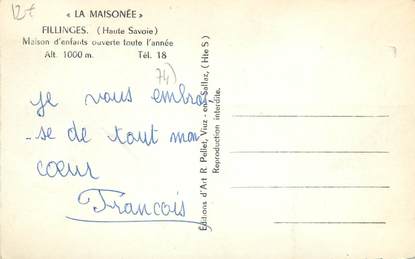 12f
« LA MAISONÉE »
FILLINGES. (Haute Savoie)
Maison d'enfants ouverte toute l'année
Alt. 1000 m. Tél. 18
74)
je vous embras
se de tout mon
cœur
Francois
Éditions d'Art R. Pellet, Viuz - en - Sallaz, (Hte S)
Reproduction interdite.